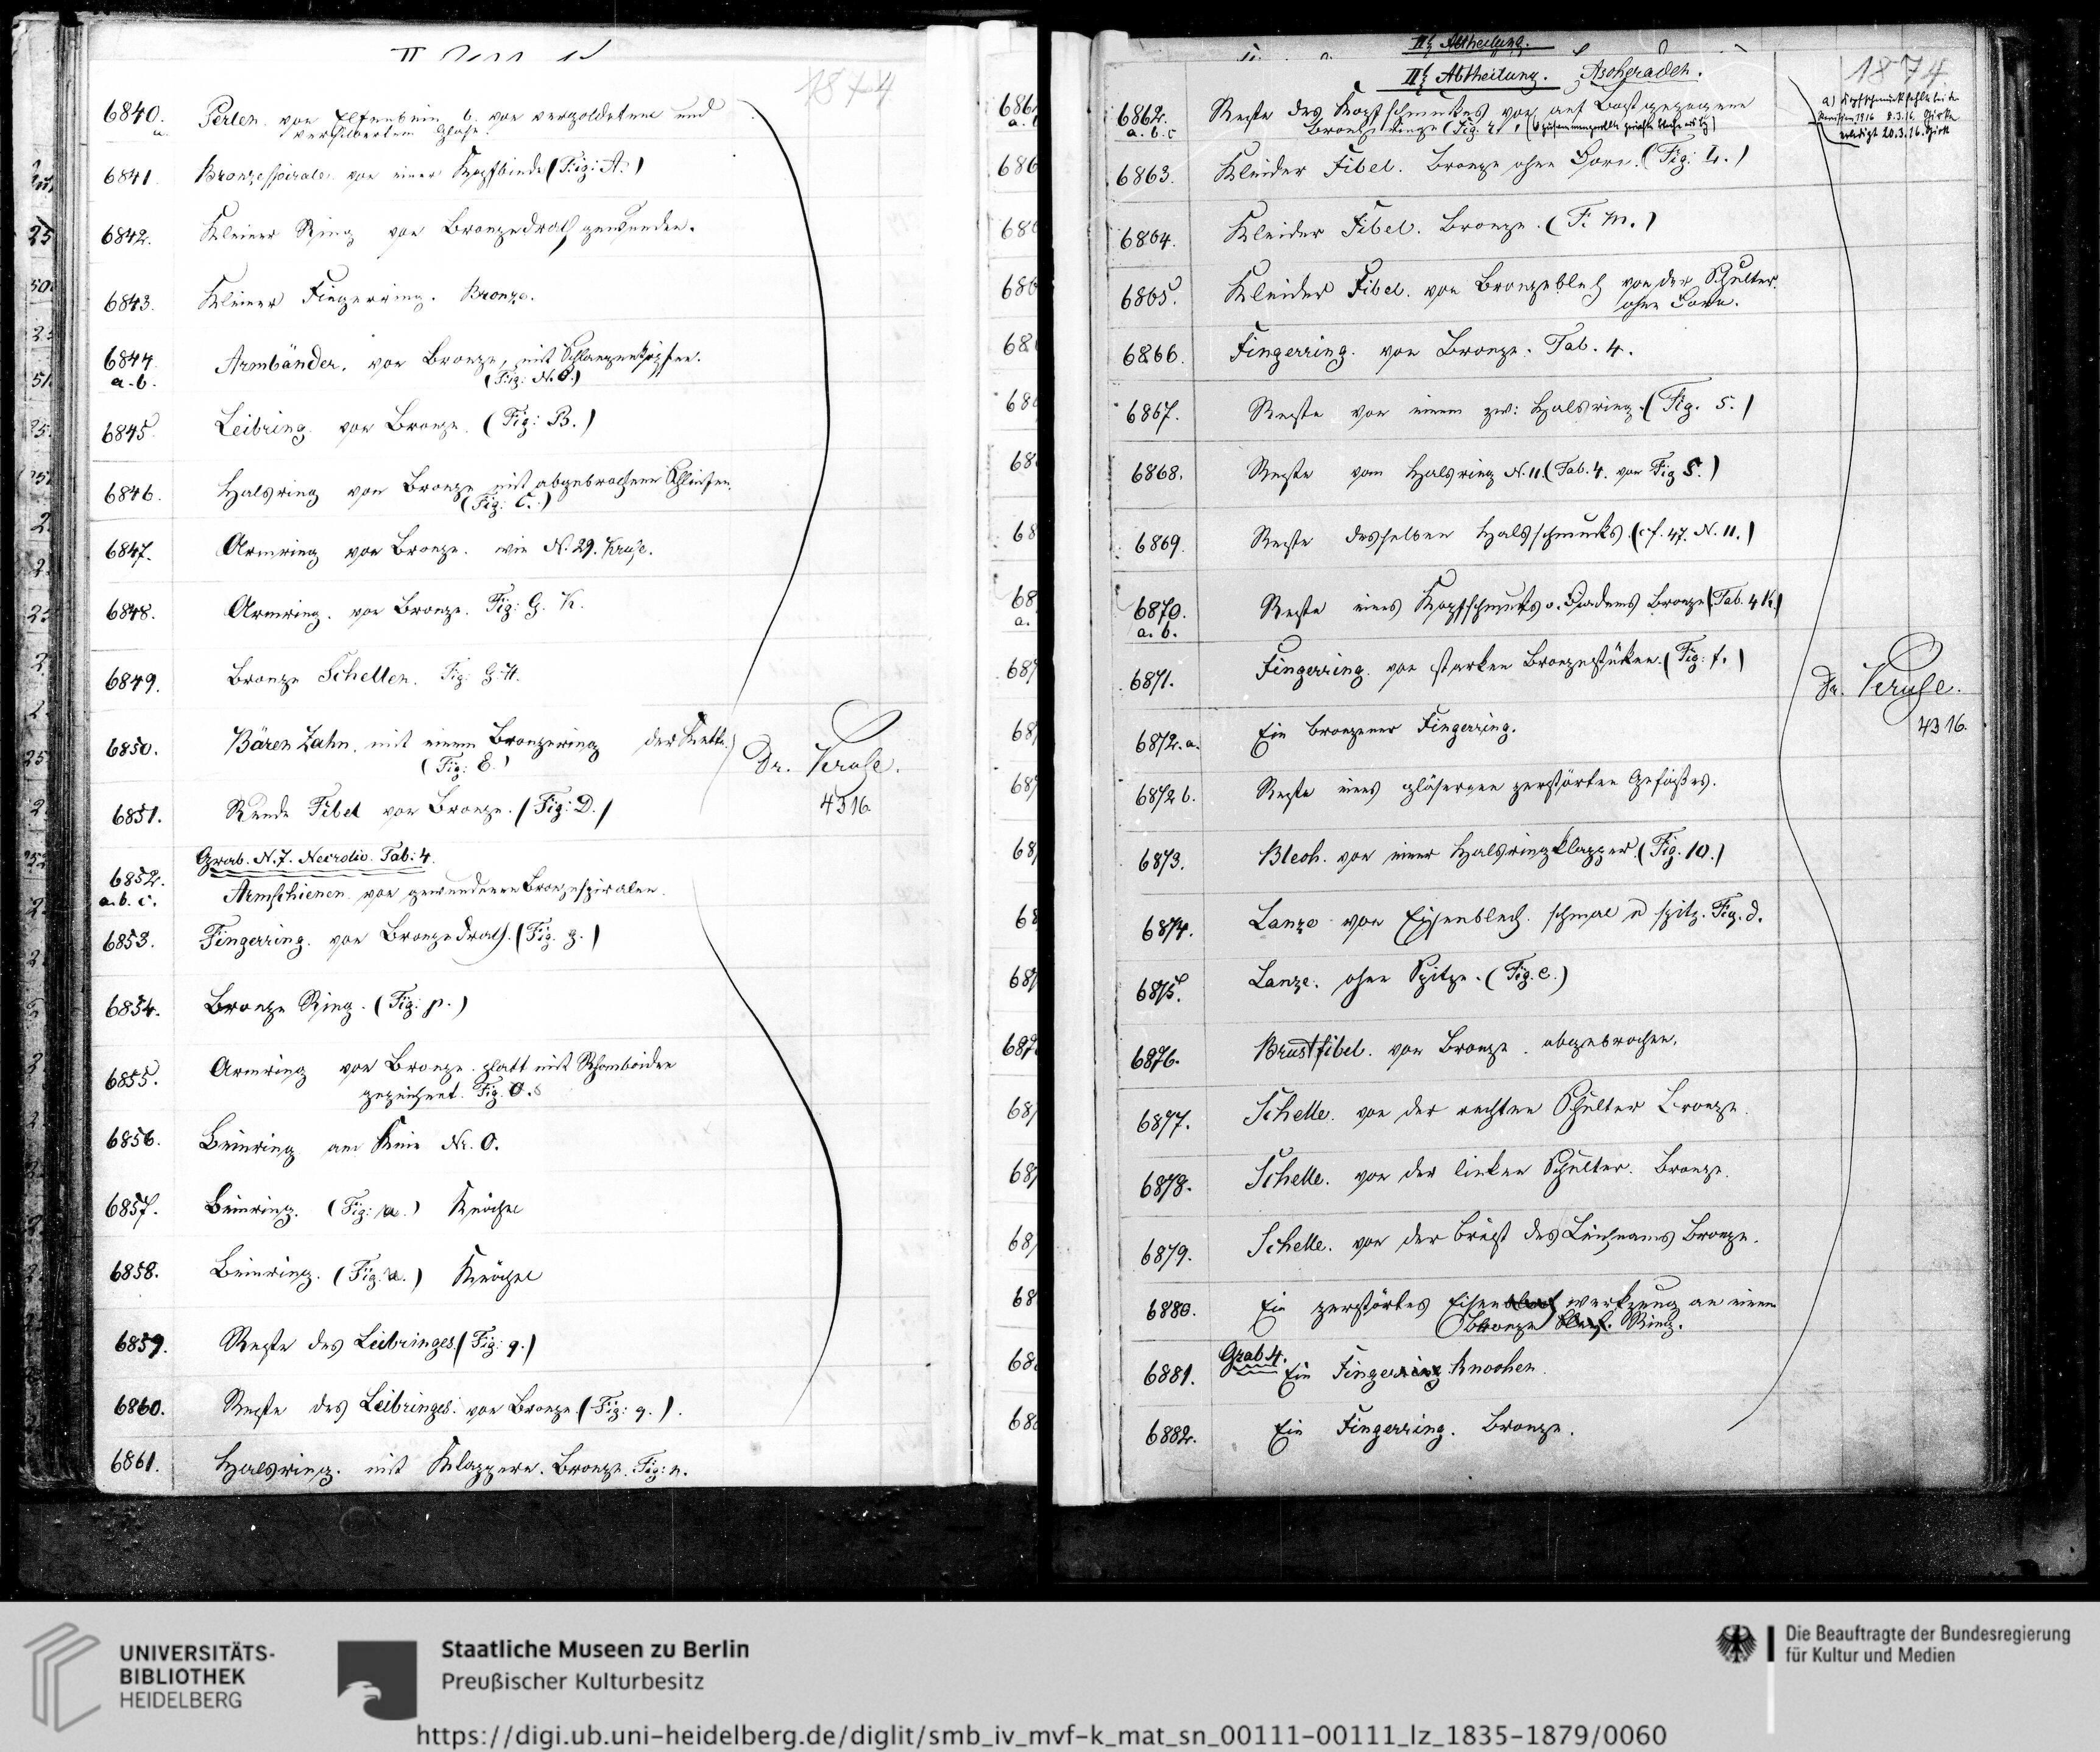 1874
6840. Perlen. von Elfenbein, b. von vergoldetem und
a. versilbertem Glase.
6841. Bronzespirale. von einer Kopfbinde (Fig: A.)
6842. Kleiner Ring von Bronzedrath gewunden.
6843. Kleiner Fingerring. Bronze.
6844. Armbänder. von Bronze, mit Schlangenköpfen.
a. b. (Fig: N.O.)
6845. Leibring. von Bronze. (Fig: B.)
6846. Halsring von Bronze mit abgebrochenen Schleifen.
(Fig: C.)
6847. Armring von Bronze. wie N. 29. Kruse.
6848. Armring. von Bronze. Fig: G. K.
6849. Bronze Schellen. Fig: G. H.
6850. Bären Zahn. mit einem Bronzering der Kette.)
(Fig: E.)
Dr. Kruse.
4316
6851. Runde Fibel von Bronze. (Fig: D.)
Grab. N. 7. Necrolio. Tab: 4.
6852. Armschienen. von gewundenen Bronzespiralen.
a. b. c.
6853. Fingerring. von Bronzedrath. (Fig. g.)
6854. Bronze Ring. (Fig: p.)
6855. Armring von Bronze. glatt mit Rhomboiden
gezeichnet. Fig. O.
6856. Beinring am Knie Nr. O.
6857. Beinring. (Fig: a.) Knöchel
6858. Beinring. (Fig. a.) Knöchel
6859. Reste des Leibringes. (Fig: q.)
6860. Reste des Leibringes. von Bronze. (Fig: q.).
6861. Halsring. mit Klappern. Bronze. Fig: n.
IIt. Abtheilung.
IIt. Abtheilung. Ascheraden.
1874
6862. Reste des Kopfschmuckes von auf Bast gezogenen
a. b. c Bronze Ringe (Fig. r.
a) Kopfschmuck fehlte bei der
Revision 1916 8.3.16.
erledigt 20.3.16.
6863. Kleider Fibel. Bronze ohne Dorn. (Fig: L.)
6864. Kleider Fibel. Bronze. (F. M.)
6865. Kleider Fibel. von Bronzeblech von der Schulter.
ohne Dorn.
6866. Fingerring. von Bronze. Tab. 4.
6867. Reste von einem zw: Halsring. (Fig. 5.)
6868. Reste vom Halsring N. 11. (Tab. 4. von Fig 5.)
6869. Reste desselben Halsschmucks. (cf. 47. N. 11.)
6870. Reste eines Kopfschmucks o. Diadems Bronze (Tab. 4 K.)
a. b.
6871. Fingerring. von starken Bronzestücken. (Fig: f.)
Dr. Kruse.
4316.
6872. a. Ein bronzener Fingerring.
6872 b. Reste eines gläsernen zerstörten Gefäßes.
6873. Blech. von einer Halsringklapper. (Fig. 10.)
6874. Lanze von Eisenblech. schmal u spitz. Fig. d.
6875. Lanze. ohne Spitze. (Fig. e.)
6876. Brustfibel. von Bronze. abgebrochen.
6877. Schelle. von der rechten Schulter Bronze.
6878. Schelle. von der linken Schulter. Bronze.
6879. Schelle. von der Brust des Leichnams Bronze.
6880. Ein zerstörtes Eisen werkzeug an einem
Bronze Ring.
Grab 4.
6881. Ein Finger Knochen.
6882. Ein Fingerring. Bronze.
UNIVERSITÄTS-
BIBLIOTHEK
HEIDELBERG
Staatliche Museen zu Berlin
Preußischer Kulturbesitz
Die Beauftragte der Bundesregierung
für Kultur und Medien
https://digi.ub.uni-heidelberg.de/diglit/smb_iv_mvf-k_mat_sn_00111-00111_lz_1835-1879/0060